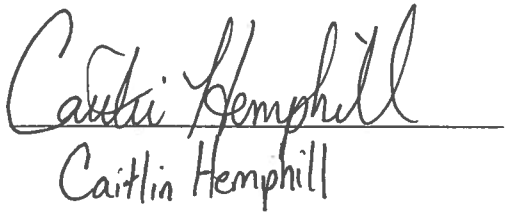 Caitlin Hemphill
Caitlin Hemphill